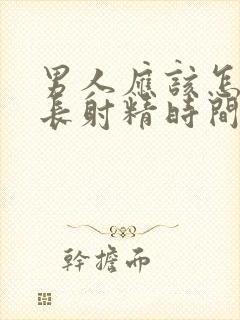 男人應該怎
長射精時間
幹擔而